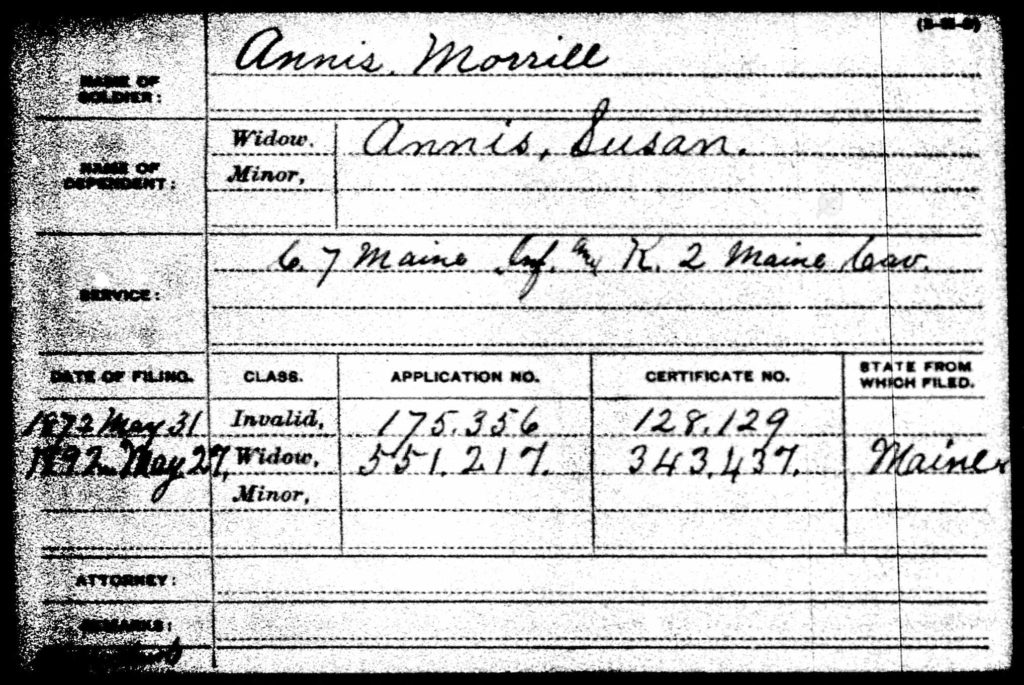 (3-111-3)
NAME OF SOLDIER: Annis, Morrill
NAME OF DEPENDENT: Widow, Annis, Susan.
Minor,
SERVICE: C. 7 Maine Inf. and K. 2 Maine Cav.
DATE OF FILING. CLASS. APPLICATION NO. CERTIFICATE NO. STATE FROM WHICH FILED.
1872 May 31 Invalid, 175.356 128.129
1892 May 27, Widow, 551.217. 343.437. Maine
Minor,
ATTORNEY:
REMARKS: